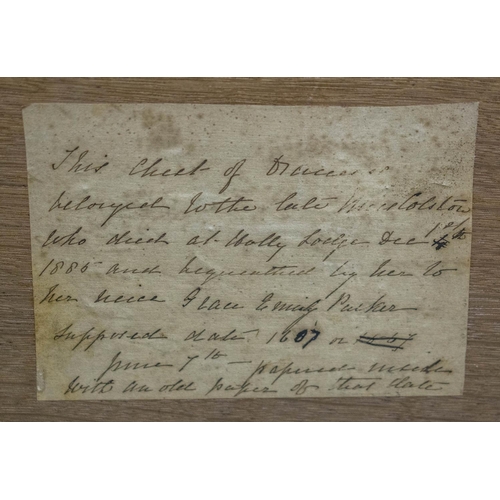 This Chest of Drawers
belonged to the late Miss Colston
who died at Holly Lodge Dec 18th
1885 and bequeathed by her to
her neice Grace Emily Parker
Supposed date 1607 or
June 7th – papered inside
with an old paper of that date